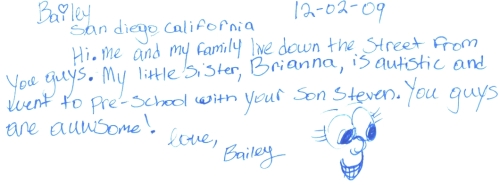 Bailey 12-02-09
San diego, California
Hi. Me and my family live down the street from
you guys. My little sister, Brianna, is autistic and
went to pre-school with your son Steven. You guys
are auwsome!
Love,
Bailey